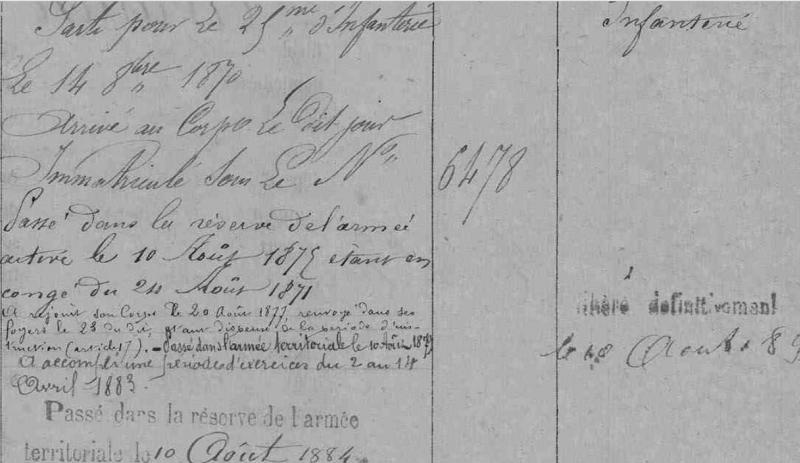 Parti pour le 25me d'Infanterie
le 14 8bre 1870
Arrivé au Corps le dit jour
Immatriculé sous le No
6478
Passé dans la réserve de l'armée
active le 10 Août 1875 étant en
congé du 24 Août 1871
A rejoint son Corps le 20 Août 1877, renvoyé dans ses
foyers le 23 du dit, étant dispensé de la période d'ins-
truction (article 17). - Passé dans l'armée territoriale le 10 Août
A accompli une période d'exercices du 2 au 14
Avril 1883.
Passé dans la réserve de l'armée
territoriale le 10 Août 1884
Infanterie
libéré définitivement
le Août 89